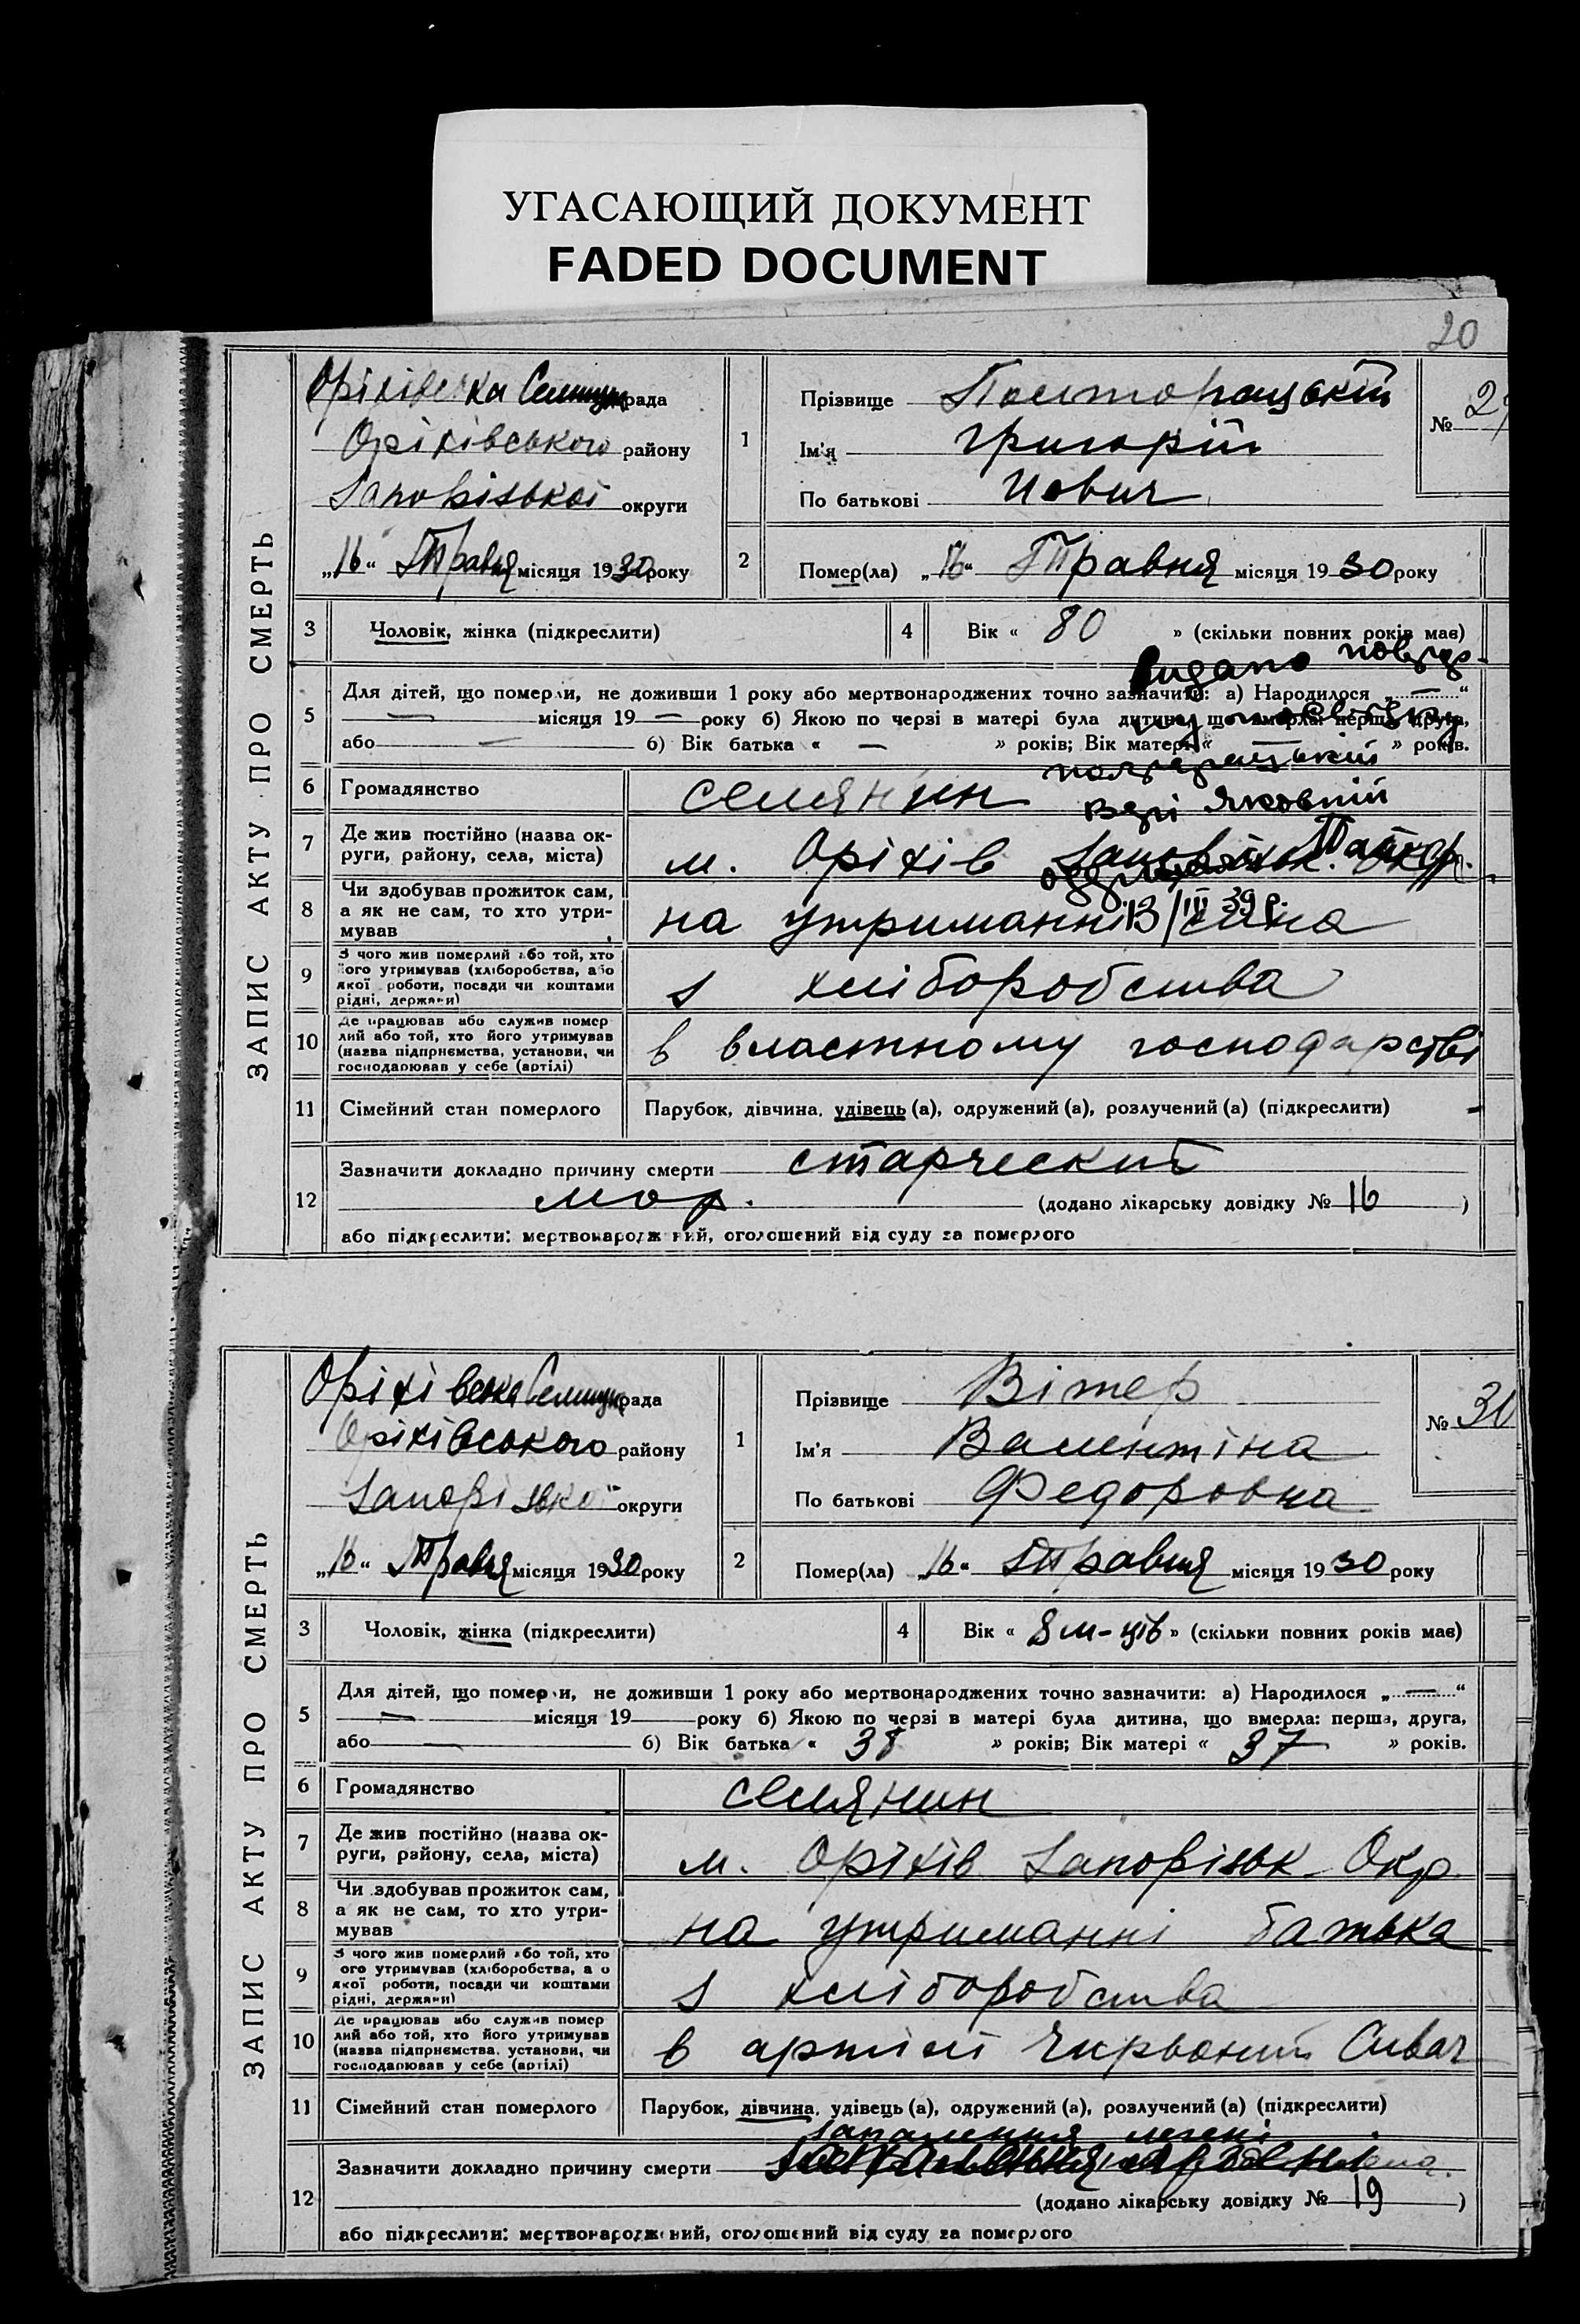 УГАСАЮЩИЙ ДОКУМЕНТ
FADED DOCUMENT
20
ЗАПИС АКТУ ПРО СМЕРТЬ
Оріхівська Селищн рада
Оріхівського району
Запорізької округи
„16“ Травня місяця 1930 року
1
Прізвище
Ім'я Григорій
По батькові
№ 29
2
Помер(ла) „16“ Травня місяця 1930 року
3 Чоловік, жінка (підкреслити)
4 Вік « 80 » (скільки повних років має)
5 Для дітей, що померли, не доживши 1 року або мертвонароджених точно зазначити: а) Народилося „ — “
— місяця 19 — року б) Якою по черзі в матері була дитина, що вмерла: перша, друга,
або — б) Вік батька « — » років; Вік матері « — » років.
Видано повідо-
Яковній
13/III 39 р.
6 Громадянство селянин
7 Де жив постійно (назва ок-
руги, району, села, міста) м. Оріхів Запорізьк. Окр.
8 Чи здобував прожиток сам,
а як не сам, то хто утри-
мував на утриманні сина
9 З чого жив померлий або той, хто
його утримував (хліборобства, або
якої роботи, посади чи коштами
рідні, держави) з хліборобства
10 Де працював або служив помер-
лий або той, хто його утримував
(назва підприємства, установи, чи
господарював у себе (артілі) в властному господарстві
11 Сімейний стан померлого Парубок, дівчина, удівець (а), одружений (а), розлучений (а) (підкреслити)
12 Зазначити докладно причину смерти старческий
мор. (додано лікарську довідку № 16 )
або підкреслити: мертвонароджений, оголошений від суду за померлого
ЗАПИС АКТУ ПРО СМЕРТЬ
Оріхівська Селищн рада
Оріхівського району
Запорізької округи
„16“ Травня місяця 1930 року
1
Прізвище Вітер
Ім'я Валентіна
По батькові Федоровна
№ 30
2
Помер(ла) „16“ Травня місяця 1930 року
3 Чоловік, жінка (підкреслити)
4 Вік « 8 м-ців » (скільки повних років має)
5 Для дітей, що померли, не доживши 1 року або мертвонароджених точно зазначити: а) Народилося „ — “
— місяця 19 року б) Якою по черзі в матері була дитина, що вмерла: перша, друга,
або — б) Вік батька « 38 » років; Вік матері « 37 » років.
6 Громадянство селянин
7 Де жив постійно (назва ок-
руги, району, села, міста) м. Оріхів Запорізьк Окр
8 Чи здобував прожиток сам,
а як не сам, то хто утри-
мував на утриманні батька
9 З чого жив померлий або той, хто
ого утримував (хліборобства, або
якої роботи, посади чи коштами
рідні, держави) з хліборобства
10 Де працював або служив помер
лий або той, хто його утримував
(назва підприємства, установи, чи
господарював у себе (артілі) в артілі Червоний Сивач
11 Сімейний стан померлого Парубок, дівчина, удівець (а), одружений (а), розлучений (а) (підкреслити)
запалення легені
12 Зазначити докладно причину смерти
(додано лікарську довідку № 19 )
або підкреслити: мертвонароджений, оголошений від суду за померлого